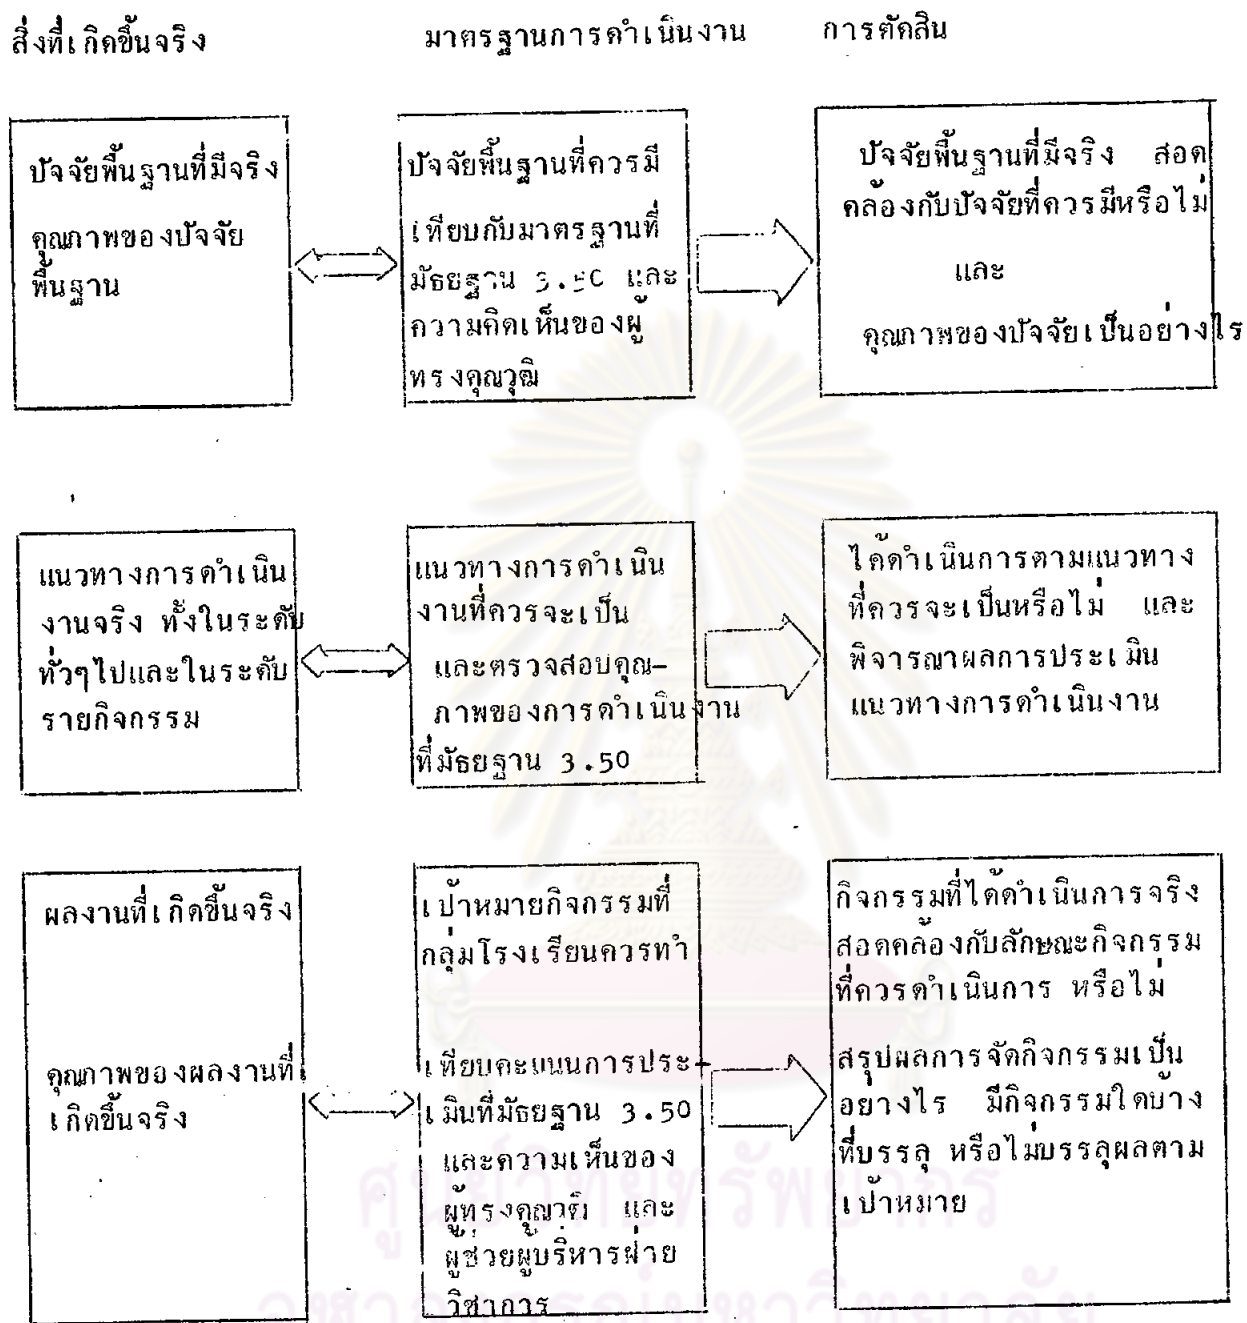 สิ่งที่เกิดขึ้นจริง
มาตรฐานการดำเนินงาน
การตัดสิน
ปัจจัยพื้นฐานที่มีจริง
คุณภาพของปัจจัย
พื้นฐาน
ปัจจัยพื้นฐานที่ควรมี
เทียบกับมาตรฐานที่
มัธยฐาน 3.50 และ
ความคิดเห็นของผู้
ทรงคุณวุฒิ
ปัจจัยพื้นฐานที่มีจริง สอด
คล้องกับปัจจัยที่ควรมีหรือไม่
และ
คุณภาพของปัจจัยเป็นอย่างไร
แนวทางการดำเนิน
งานจริง ทั้งในระดับ
ทั่วๆไปและในระดับ
รายกิจกรรม
แนวทางการดำเนิน
งานที่ควรจะเป็น
และตรวจสอบคุณ-
ภาพของการดำเนินงาน
ที่มัธยฐาน 3.50
ได้ดำเนินการตามแนวทาง
ที่ควรจะเป็นหรือไม่ และ
พิจารณาผลการประเมิน
แนวทางการดำเนินงาน
ผลงานที่เกิดขึ้นจริง
คุณภาพของผลงานที่
เกิดขึ้นจริง
เป้าหมายกิจกรรมที่
กลุ่มโรงเรียนควรทำ
เทียบคะแนนการประ-
เมินที่มัธยฐาน 3.50
และความเห็นของ
ผู้ทรงคุณวุฒิ และ
ผู้ช่วยผู้บริหารฝ่าย
วิชาการ
กิจกรรมที่ได้ดำเนินการจริง
สอดคล้องกับลักษณะกิจกรรม
ที่ควรดำเนินการ หรือไม่
สรุปผลการจัดกิจกรรมเป็น
อย่างไร มีกิจกรรมใดบ้าง
ที่บรรลุ หรือไม่บรรลุผลตาม
เป้าหมาย
ศูนย์วิทยทรัพยากร
จุฬาลงกรณ์มหาวิทยาลัย